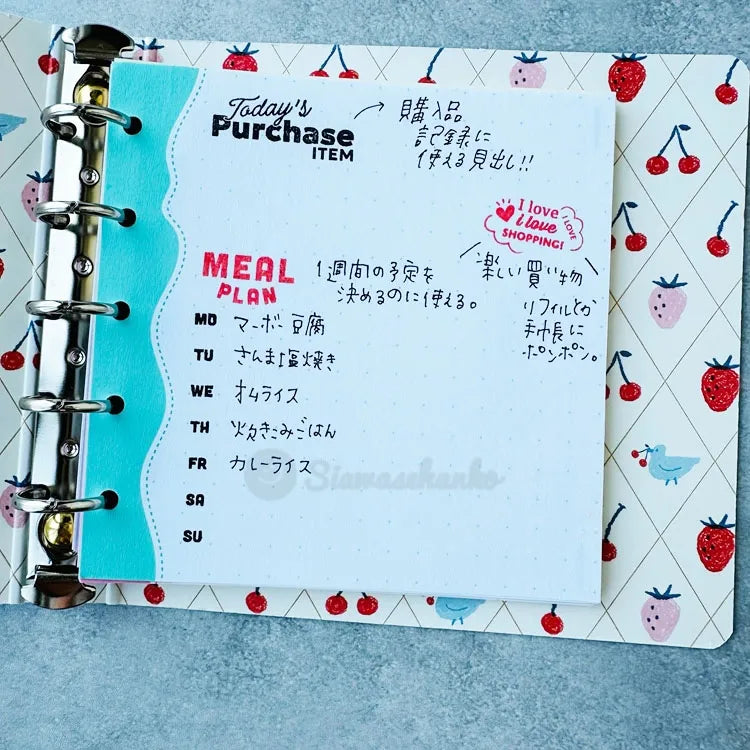 Today's
Purchase
ITEM
購入品
記録に
使える見出し!!
I love
i love
I LOVE
SHOPPING!
楽しい買い物
リフィルとか
手帳に
ポンポン。
MEAL
PLAN
1週間の予定を
決めるのに使える。
MO マーボー豆腐
TU さんま塩焼き
WE オムライス
TH 炊きこみごはん
FR カレーライス
SA
SU
Siawasehanko